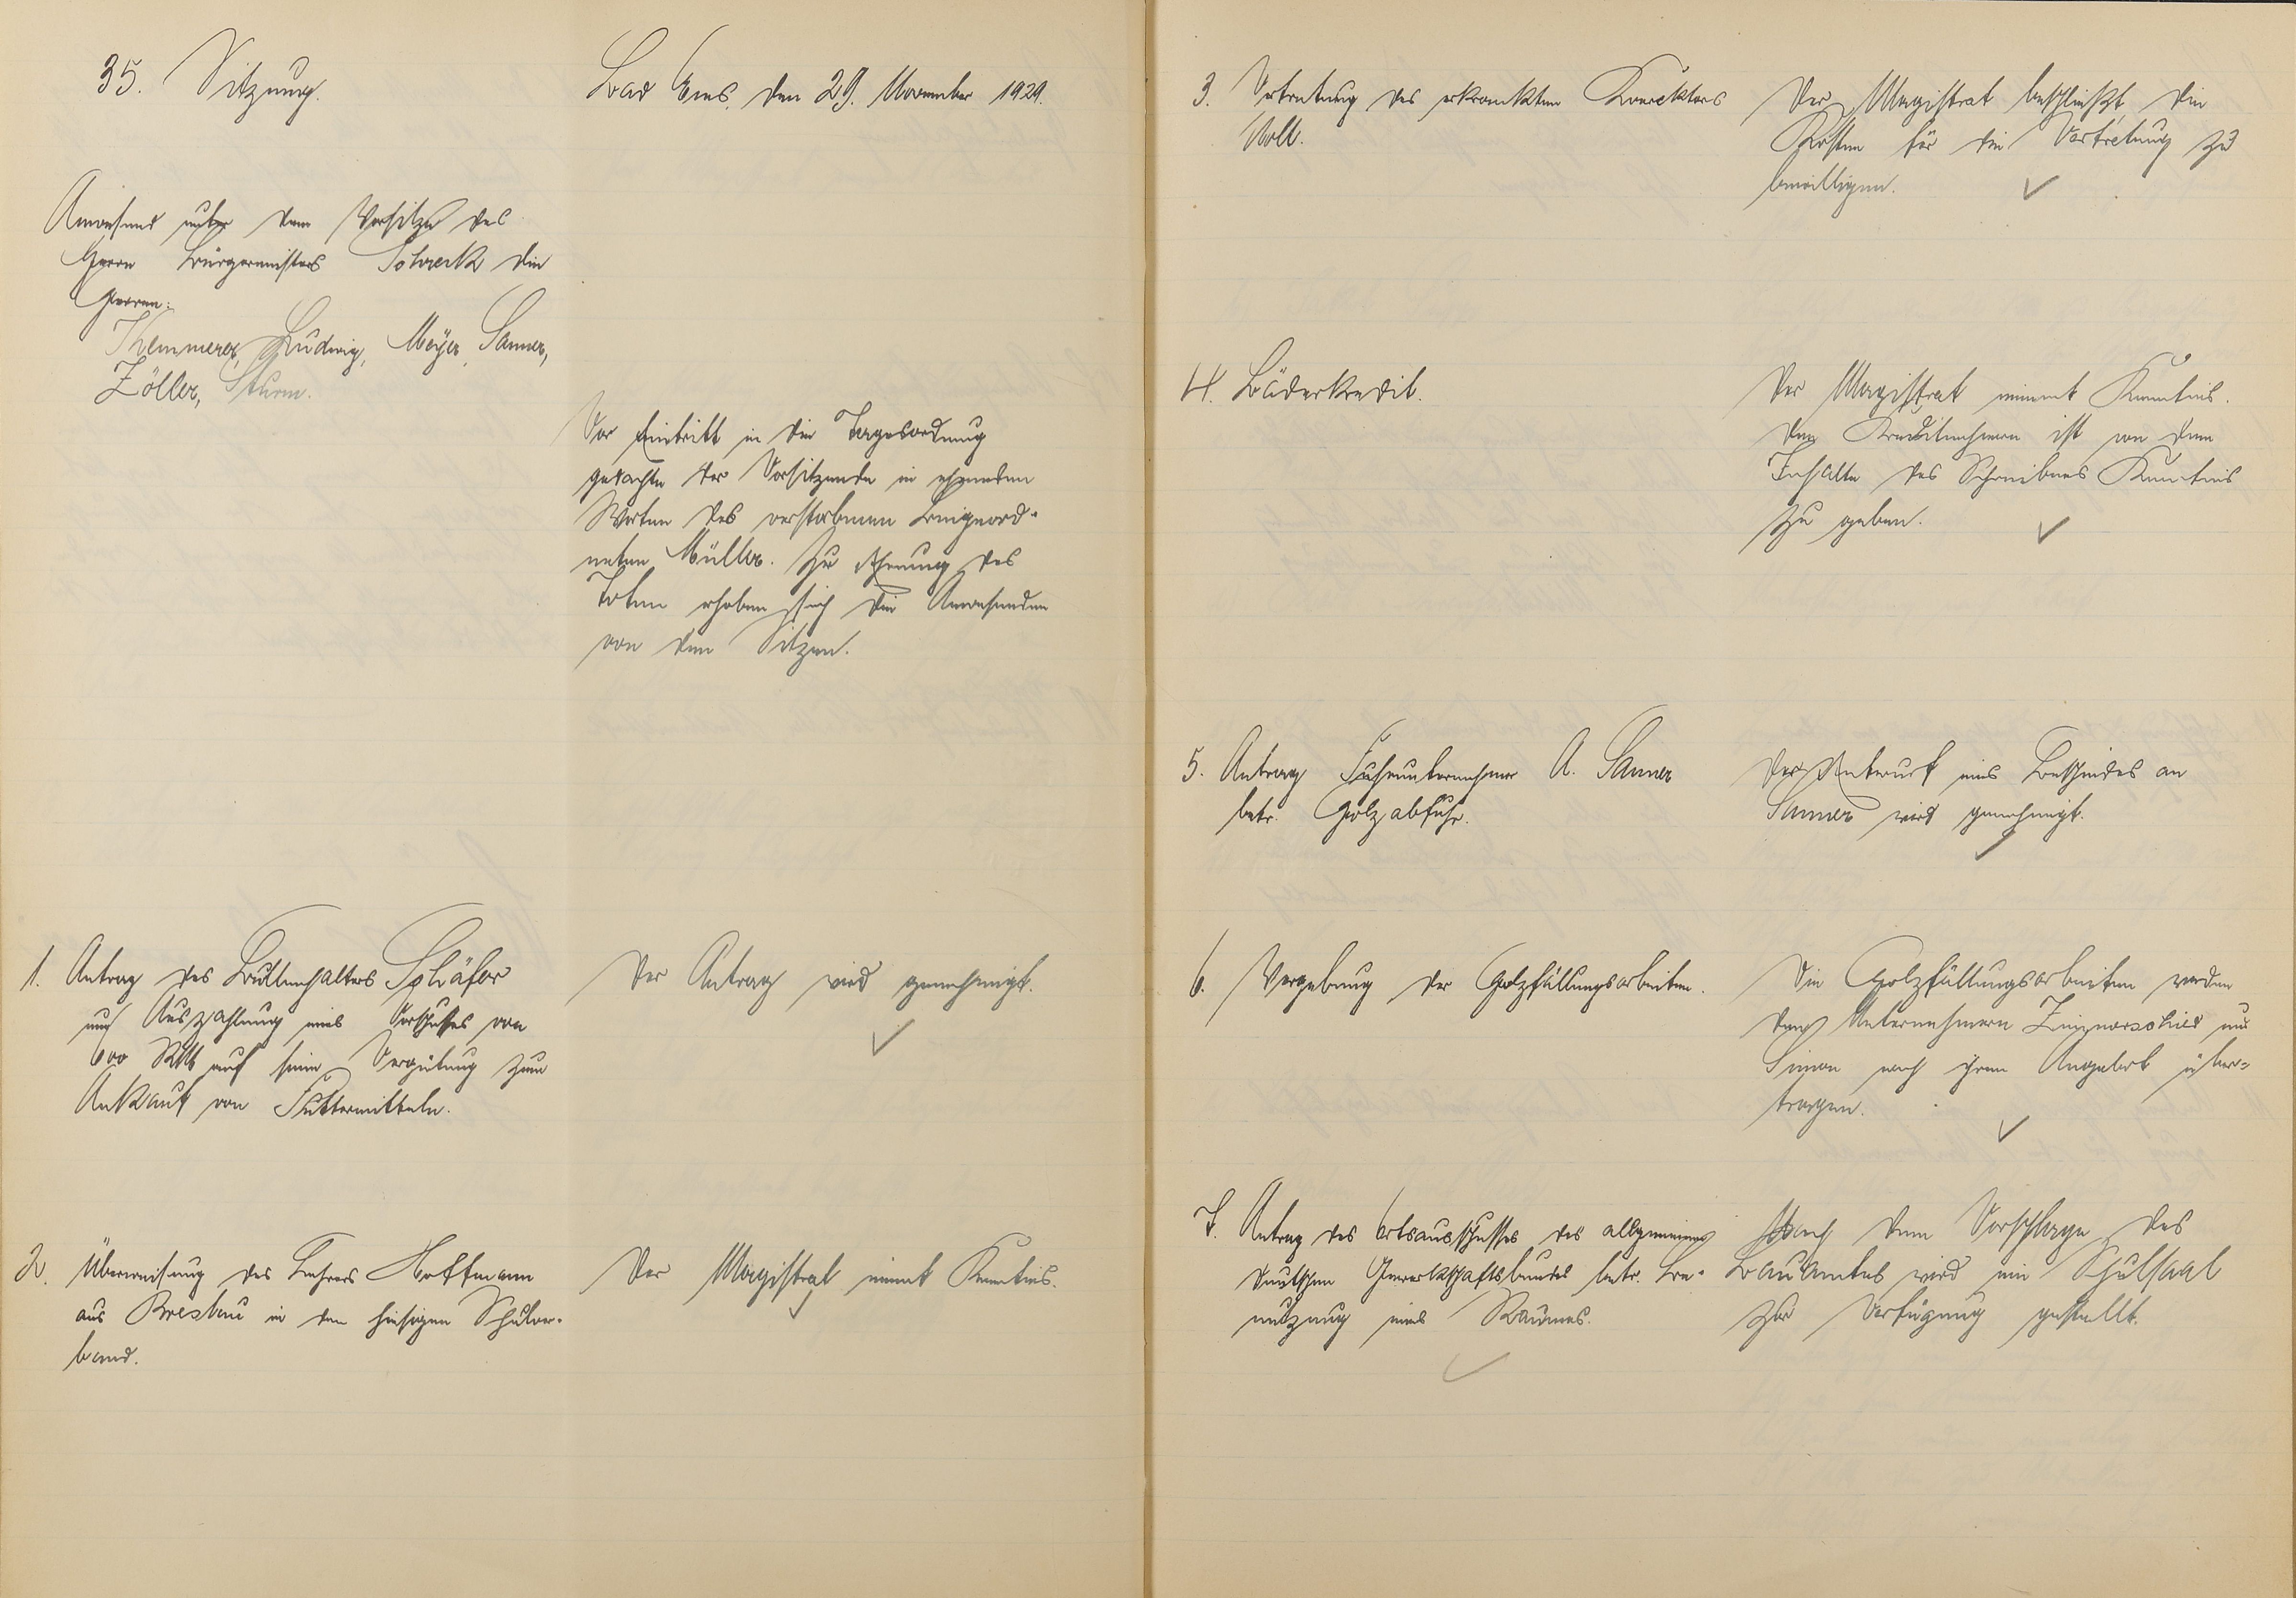 35. Sitzung.
Bad Ems, den 29. November 1929.
Anwesend unter dem Vorsitze des
Herrn Bürgermeisters Schreck die
Herren:
Themmerer, Ludwig, Meyer, Sanner,
Zöller, Sturm.
Vor Eintritt in die Tagesordnung
gedachte der Vorsitzende in ehrenden
Worten des verstorbenen Beigeord-
neten Müller. Zur Ehrung des
Toten erhoben sich die Anwesenden
von den Sitzen.
1. Antrag des Bullenhalters Schäfer
auf Auszahlung eines Vorschusses von
600 RM auf seine Vergütung zum
Ankauf von Futtermitteln.
Der Antrag wird genehmigt.
2. Überweisung des Lehrers Hoffmann
aus Breslau in den hiesigen Schulver-
band.
Der Magistrat nimmt Kenntnis.
3. Vertretung des erkrankten Konrektors
Noll.
Der Magistrat beschließt, die
Kosten für die Vertretung zu
bewilligen.
4. Bäderkredit.
Der Magistrat nimmt Kenntnis.
Den Kreditnehmern ist von dem
Inhalte des Schreibens Kenntnis
zu geben.
5. Antrag Fuhrunternehmer A. Sanner
betr. Holzabfuhr.
Der Entwurf eines Bescheides an
Sanner wird genehmigt.
6. Vergebung der Holzfällungsarbeiten.
Die Holzfällungsarbeiten werden
den Unternehmern und
Simon nach ihrem Angebot über-
tragen.
7. Antrag des Ortsausschusses des allgemeinen
Deutschen Gewerkschaftsbundes betr. Be-
nutzung eines Raumes.
Nach dem Vorschlage des
Bauamtes wird ein Schulsaal
zur Verfügung gestellt.